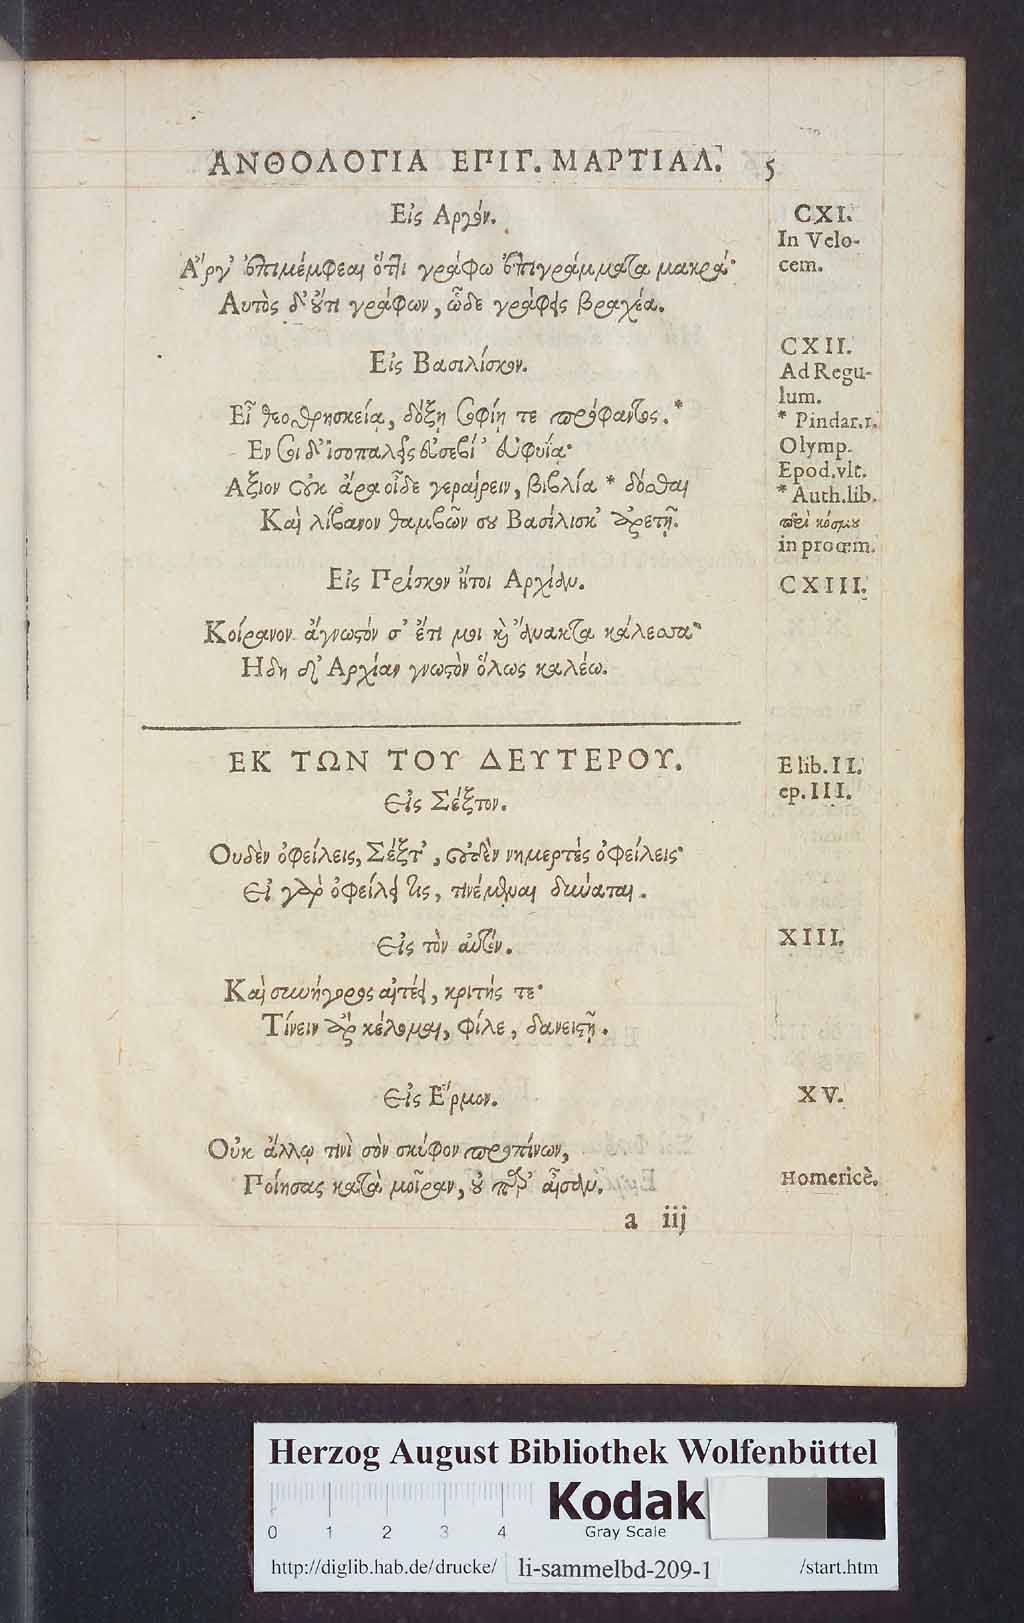 ΑΝΘΟΛΟΓΙΑ ΕΠΙΓ. ΜΑΡΤΙΑΛ. 5
Εἰς Αργόν.
CXI.
In Velo-
cem.
Αʹργʹ ἐπιμέμφεαι ὅτι γράφω ἐπιγράμματα μακρά·
Αυτὸς δʹ οὔτι γράφων, ὧδε γράφεις βραχέα.
Εἰς Βασιλίσκον.
CXII.
Ad Regu-
lum.
* Pindar. 1.
Olymp.
Epod. vlt.
* Auth. lib.
περὶ κόσμου
in proœm.
Εἶ θεοθρησκεία, δόξῃ σοφίῃ τε πρόφαντος. *
Εν σοι δʹ ἰσοπαλὴς εὐσεβίʹ εὐφυΐα·
Αξιον οὐκ ἄρα οἶδε γεραίρειν, βιβλία * δόσθαι
Καὶ λίβανον θαμβῶν σου Βασίλισκʹ ἀρετῇ.
Εἰς Πρίσκον ἤτοι Αρχίαν.
CXIII.
Κοίρανον ἄγνωστόν σʹ ἔτι μοι καὶ ἄνακτα κάλεσσα·
Ηδη δʹ Αρχίαν γνωστὸν ὅλως καλέω.
ΕΚ ΤΩΝ ΤΟΥ ΔΕΥΤΕΡΟΥ.
E lib. II.
ep. III.
Εἰς Σέξτον.
Ουδὲν ὀφείλεις, Σέξτʹ, οὐδὲν νημερτὲς ὀφείλεις·
Εἰ γὰρ ὀφείλει τις, τινέμεναι δύναται.
Εἰς τὸν αὐτόν.
XIII.
Καὶ συνήγορος αἰτέει, κριτής τε·
Τίνειν ἂρ κέλομαι, φίλε, δανειστῇ.
Εἰς Εʹρμον.
XV.
Οὐκ ἄλλῳ τινὶ σὸν σκύφον προπίνων,
Ποίησας κατὰ μοῖραν, οὐ παρʹ αἶσαν.
Homericè.
a iij
Herzog August Bibliothek Wolfenbüttel
0 1 2 3 4
Kodak
Gray Scale
http://diglib.hab.de/drucke/ li-sammelbd-209-1 /start.htm